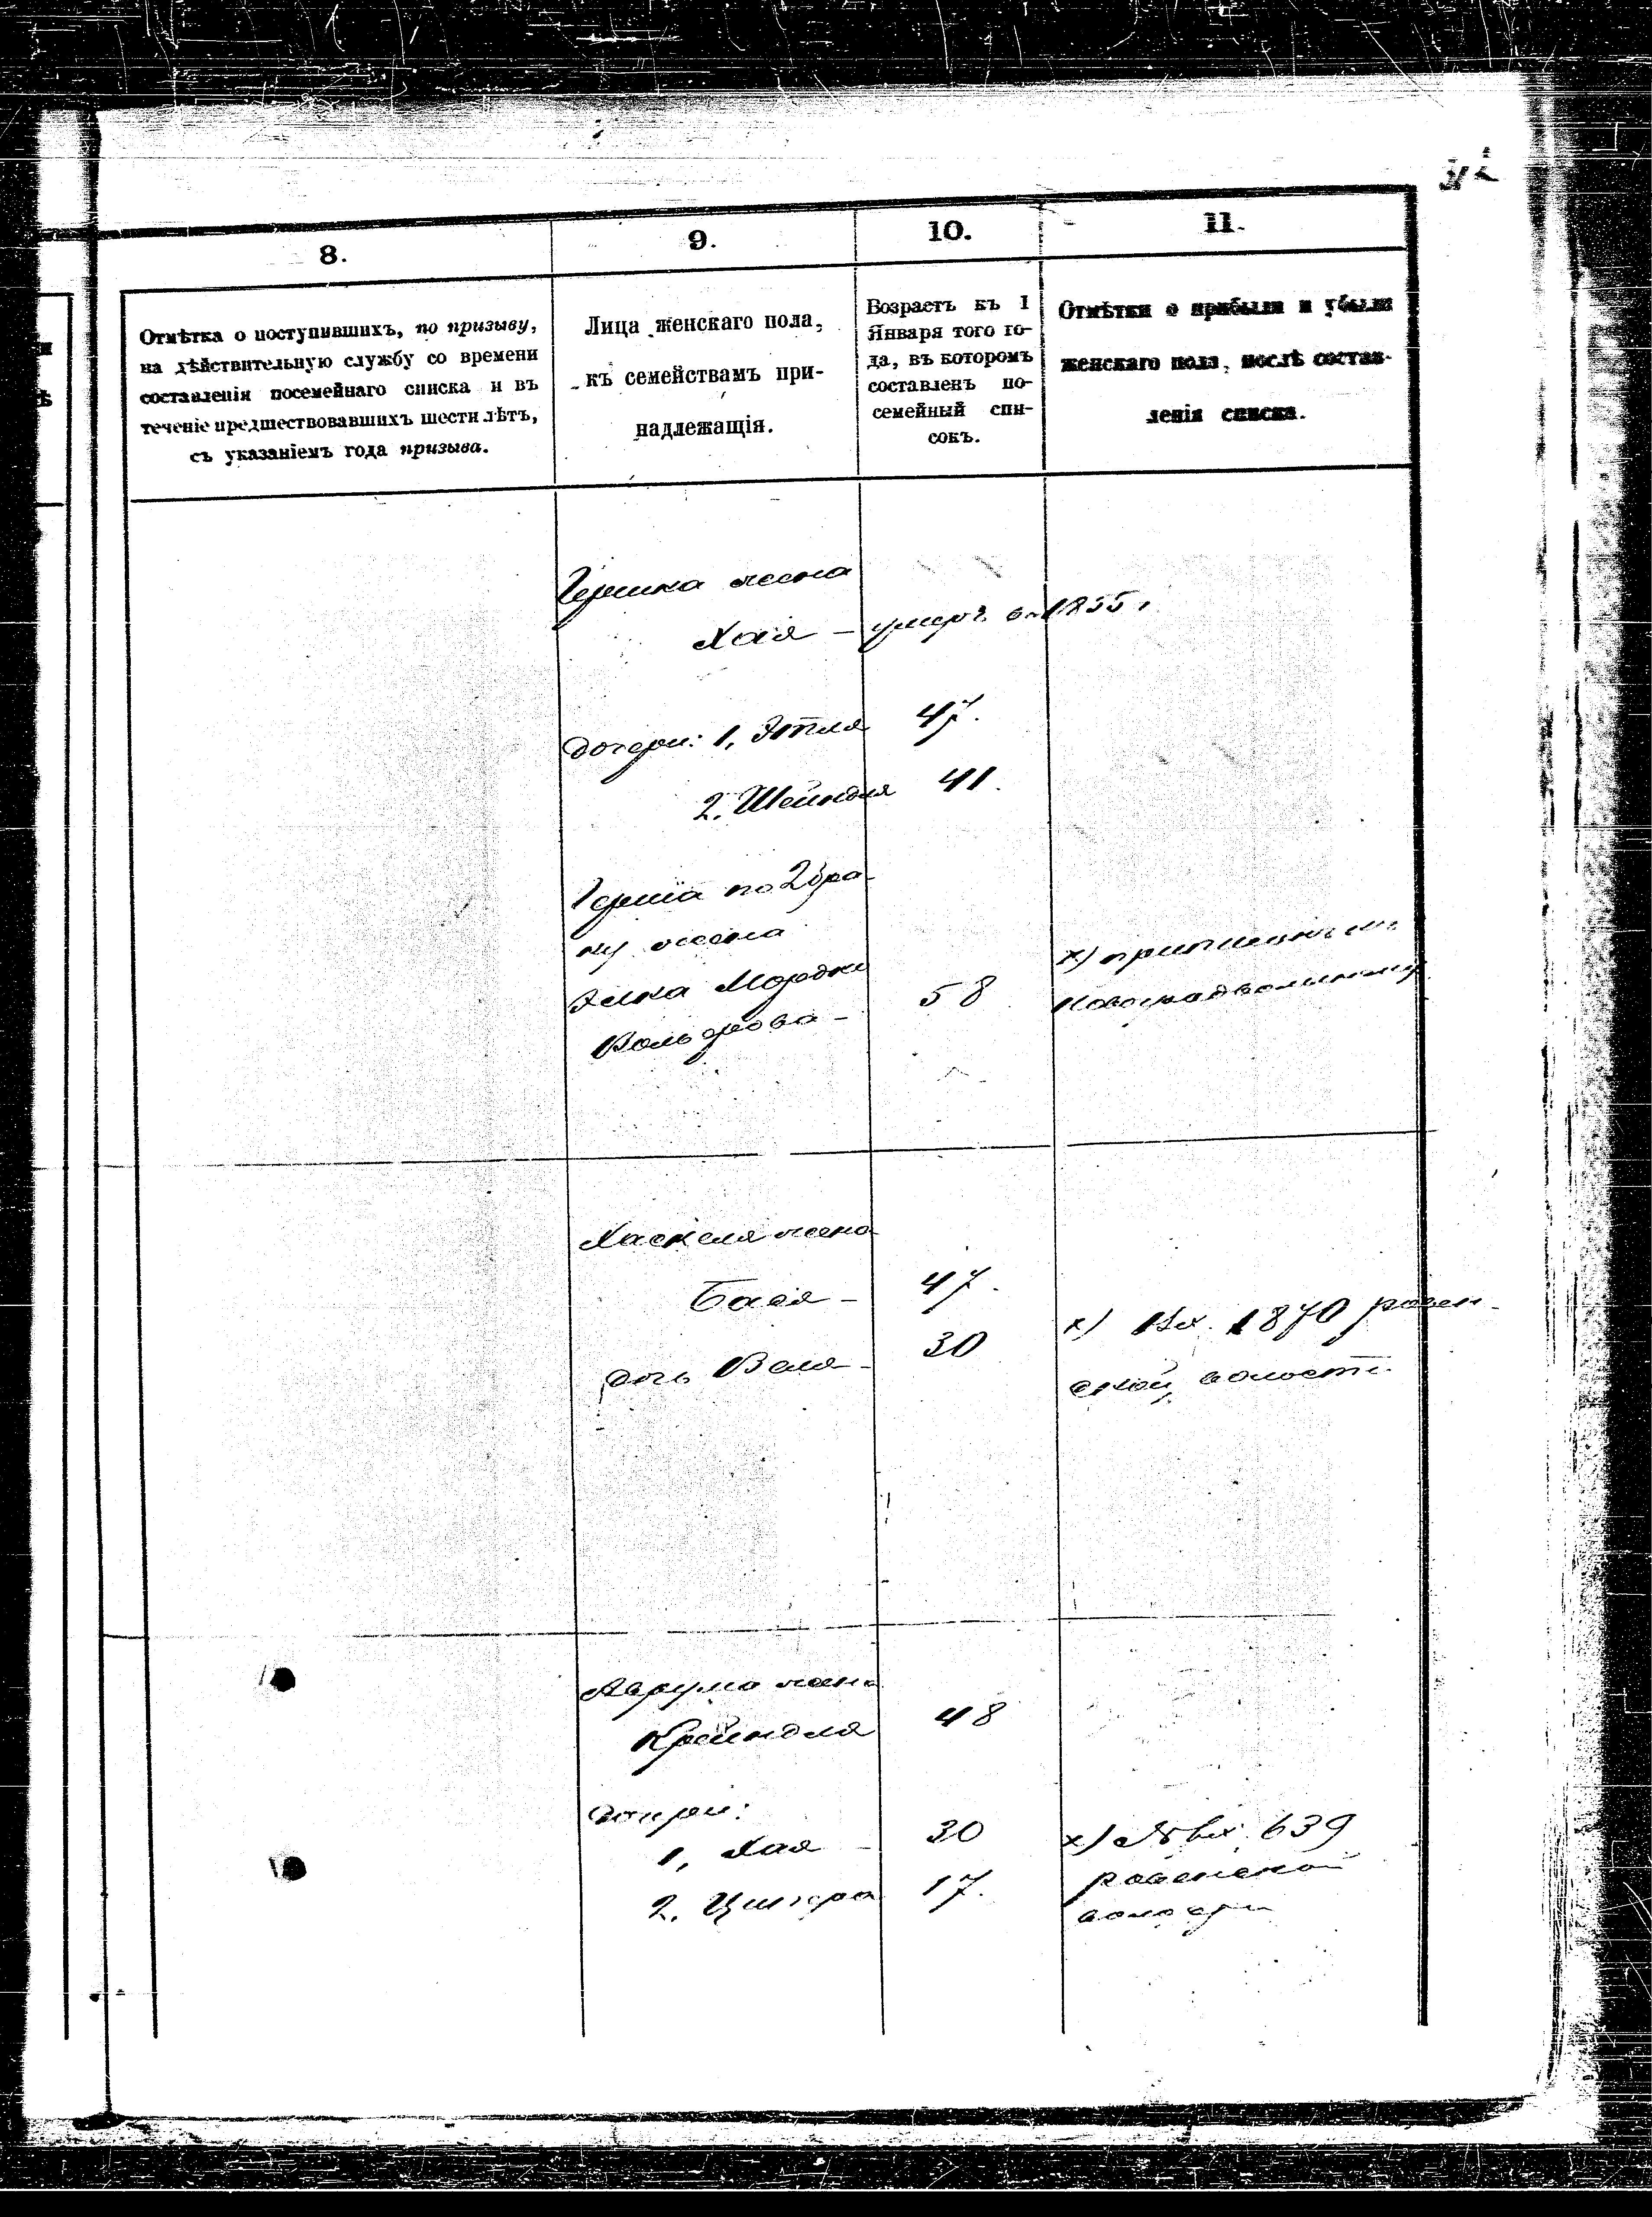 8.
9.
10.
11.
Отмѣтка о поступившихъ, по призыву,
на дѣйствительную службу со времени
составленія посемейнаго списка и въ
теченіе предшествовавшихъ шести лѣтъ,
съ указаніемъ года призыва.
Лица женскаго пола,
къ семействамъ при-
надлежащія.
Возрастъ къ 1
Января того го-
да, въ которомъ
составленъ по-
семейный спи-
сокъ.
Отмѣтки о прибыли и убыли
женскаго пола, послѣ состав-
ленія списка.
Гершка жена
Хая – умерл. въ 1855 г.
дочери: 1, Этля 47.
2. Шейндля 41.
Герша по 2 бра-
ку жена
Элка Мордко
Вольфова – 58
х)
Хаскеля жена
Бася – 47.
дочь Веля – 30
х) Вх. 1870 ровен-
ской волости
Аврума жена
Крейндля 48
Дочери:
1, Хая – 30
2. 17.
х) № вх. 639
ровенской